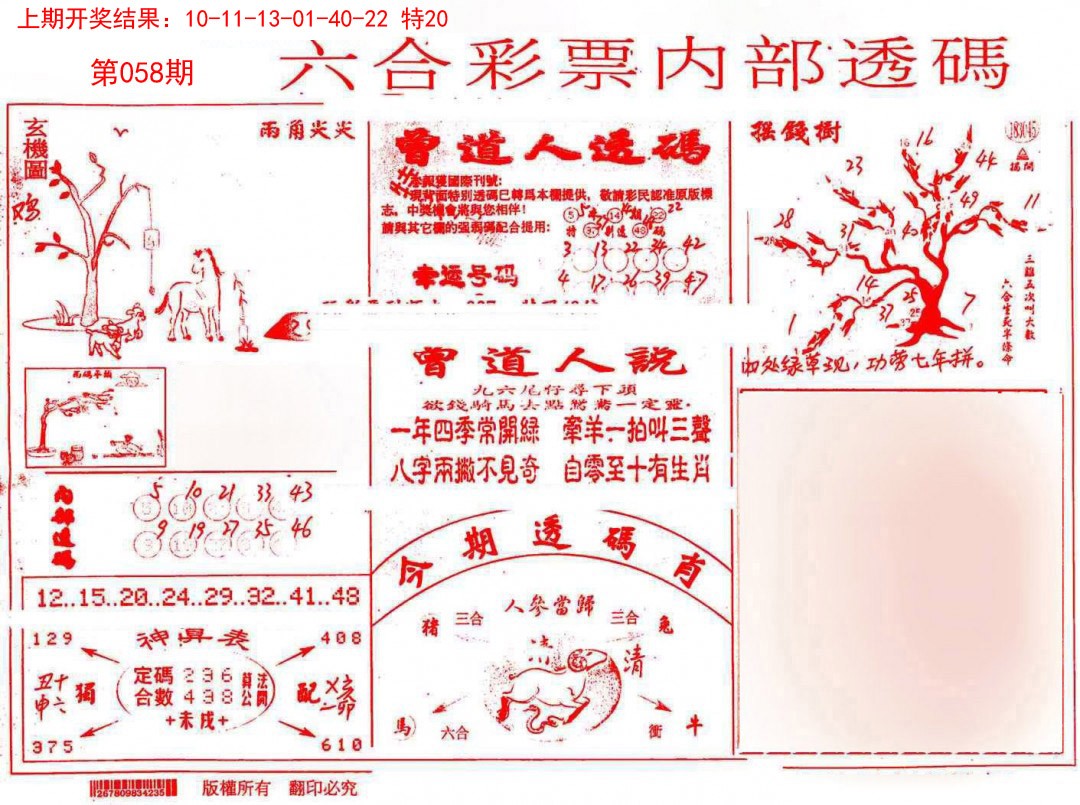 上期开奖结果：10-11-13-01-40-22 特20
第058期
六合彩票内部透碼
玄機圖
兩角尖尖
曾道人透碼
搖錢樹
現背面特别透碼已轉爲本欄提供，敬請彩民認准原版標
志，中奬機會將與您相伴！
請與其它欄的强弱碼配合提用：
幸运号码
3 13 22 34 42
4 17 26 39 47
16
23
44
49
11
28
31
40
14
25
37
7
1
三雞五次叫大數
六合生长半条命
四处绿草现，功劳七年拼。
曾道人說
九六尾仔尋下頭
欲錢騎馬去點鴛鴦一定靈.
一年四季常開綠 牽羊一拍叫三聲
八字兩撇不見奇 自零至十有生肖
内部透碼
5 10 21 33 43
9 19 27 35 46
12..15..20..24..29..32..41..48
今期透碼肖
人參當歸
猪 三合 三合 兔
清
馬 六合 衝 牛
神算表
129 408
定碼 236
合數 438
算法公開
+未戌+
獨 配
375 610
267809834235
版權所有 翻印必究